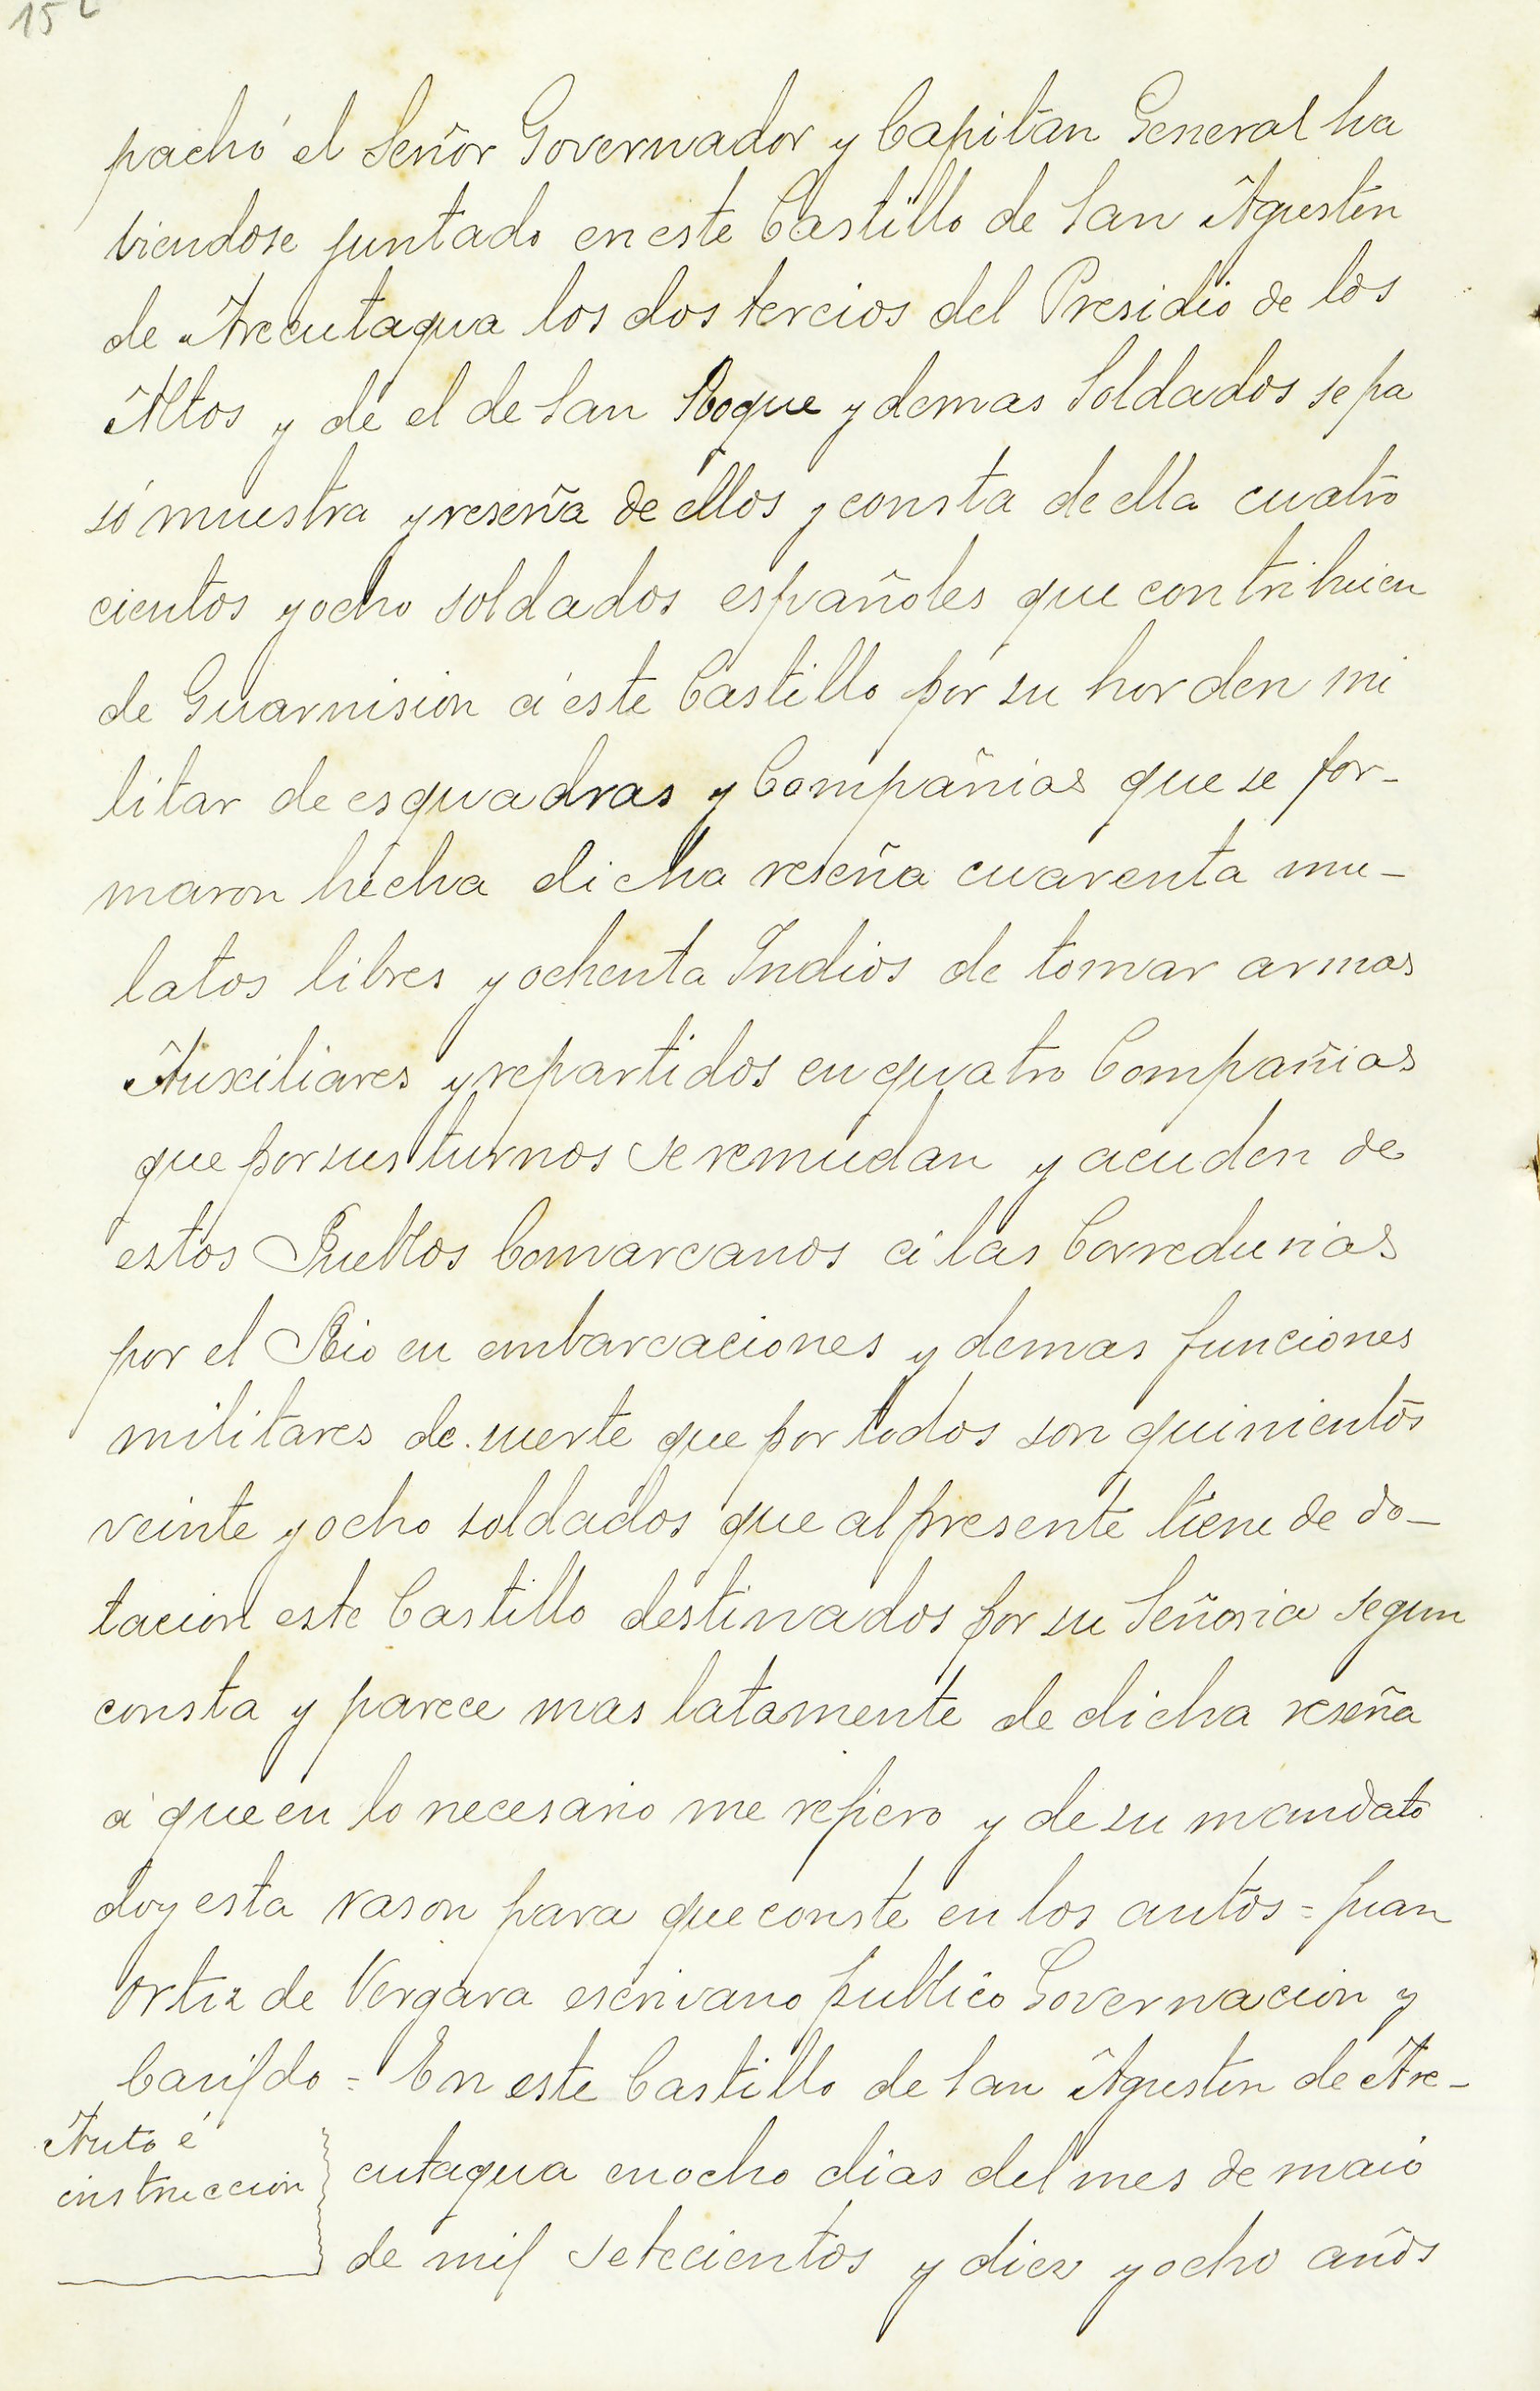 15
pachó el Señor Governador y Capitan General ha
viendose juntado en este Castillo de San Agustin
de Arecutagua los dos tercios del Presidio de los
Altos y de el de San Roque y demas Soldados se pa
só muestra y reseña de ellos y consta de ella cuatro
cientos y ocho soldados españoles que contribuien
de Guarnision á este Castillo por su horden mi
litar de esquadras y Compañias que se for-
maron hecha dicha reseña cuarenta mu-
latos libres y ochenta Indios de tomar armas
Auxiliares y repartidos en quatro Compañias
que por sus turnos se remudan y acuden de
estos Pueblos Comarcanos á las Corredurias
por el Rio en embarcaciones y demas funciones
militares de suerte que por todos son quinientos
veinte y ocho soldados que al presente tiene de do-
tacion este Castillo destinados por su Señoria segun
consta y parece mas latamente de dicha reseña
á que en lo necesario me refiero y de su mandato
doy esta rason para que conste en los autos = Juan
Ortiz de Vergara escrivano publico Governacion y
Cavildo = En este Castillo de San Agustin de Are-
Auto é
instruccion
cutagua en ocho dias del mes de maio
de mil setecientos y diez y ocho años